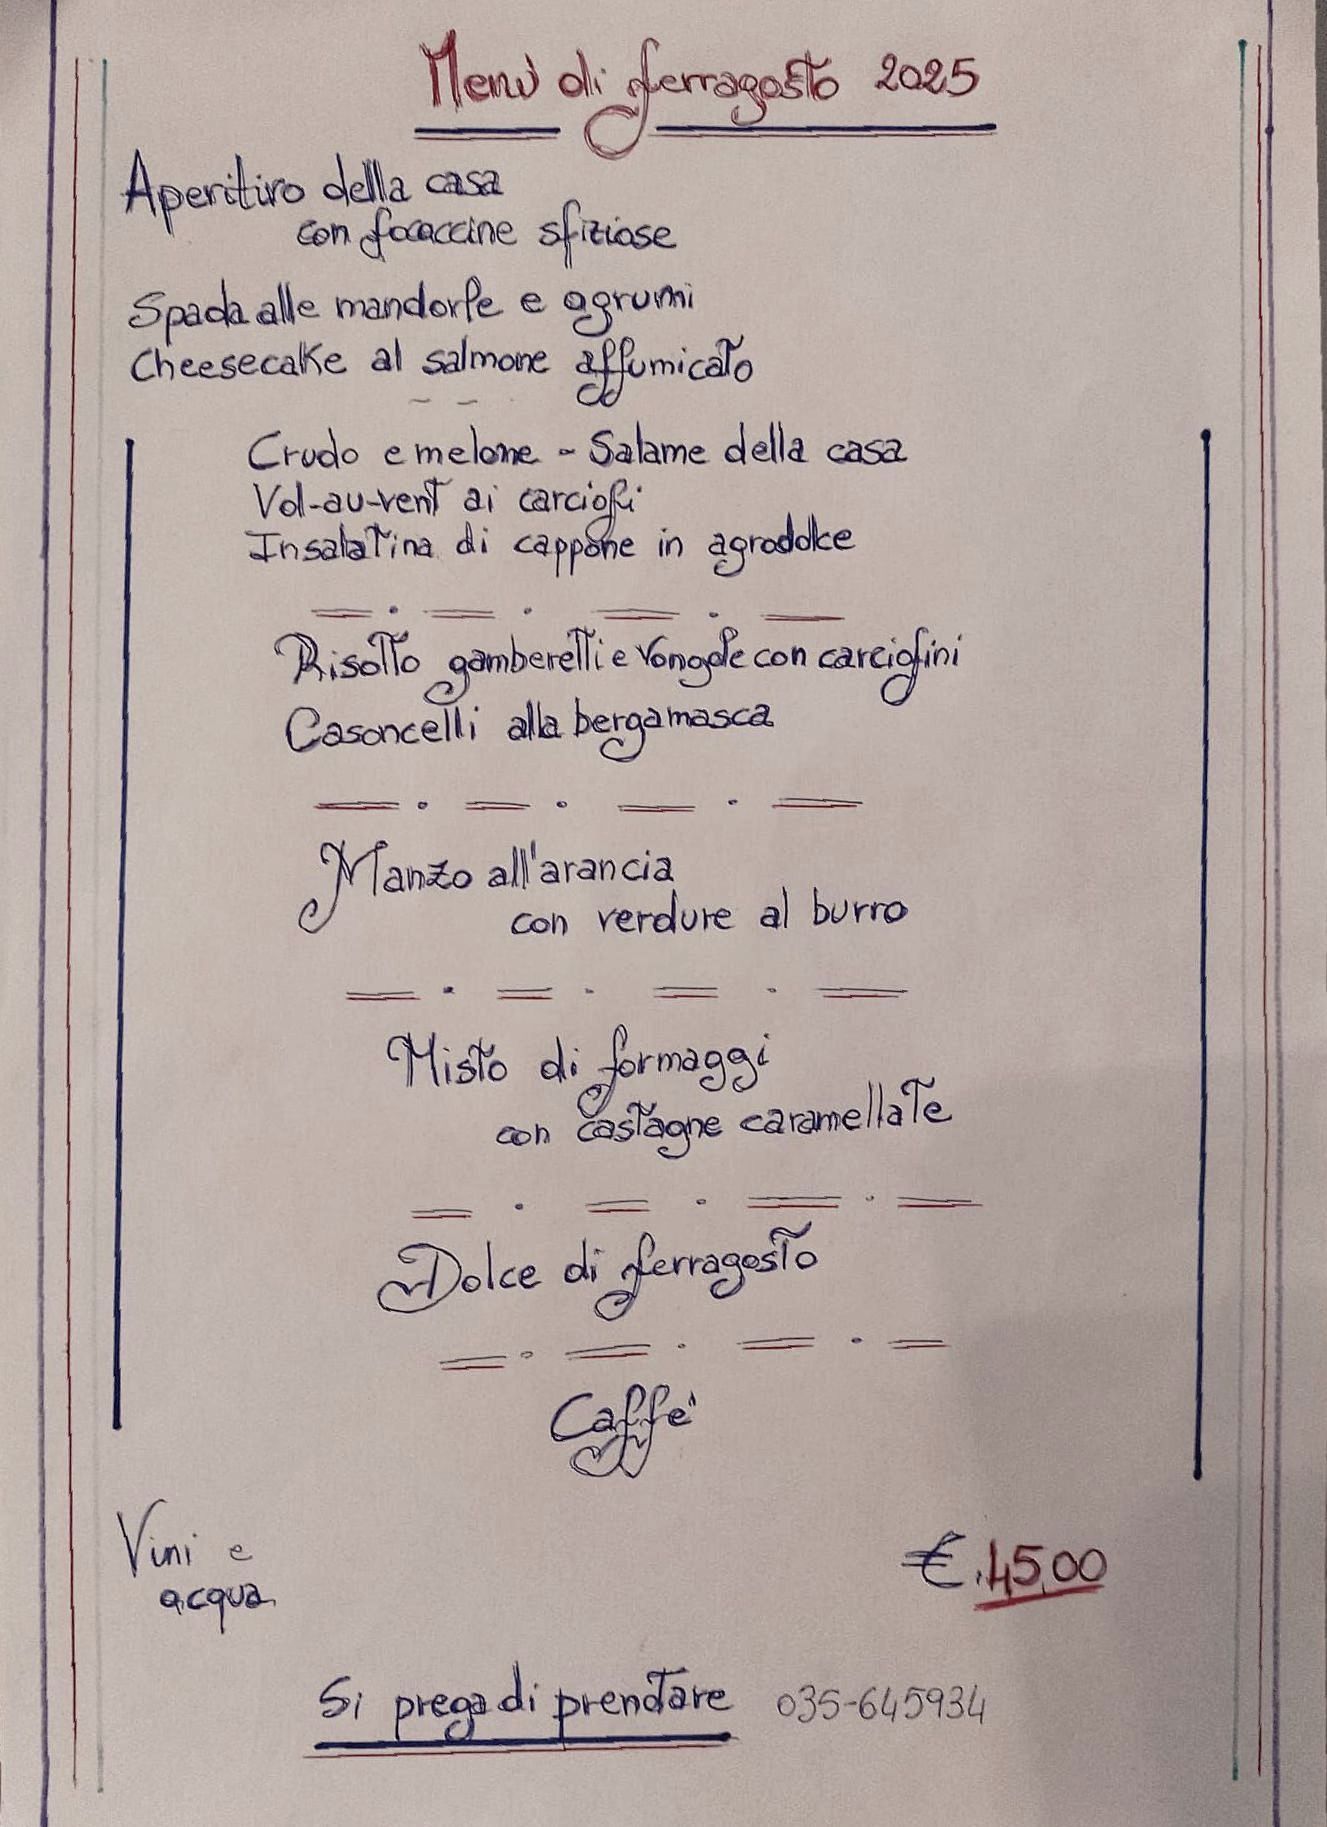 Menù di ferragosto 2025
Aperitivo della casa
con focaccine sfiziose
Spada alle mandorle e agrumi
Cheesecake al salmone affumicato
Crudo e melone - Salame della casa
Vol-au-vent ai carciofi
Insalatina di cappone in agrodolce
Risotto gamberetti e vongole con carciofini
Casoncelli alla bergamasca
Manzo all'arancia
con verdure al burro
Misto di formaggi
con castagne caramellate
Dolce di ferragosto
Caffè
Vini e
acqua
€.45,00
Si prega di prentare 035-645934